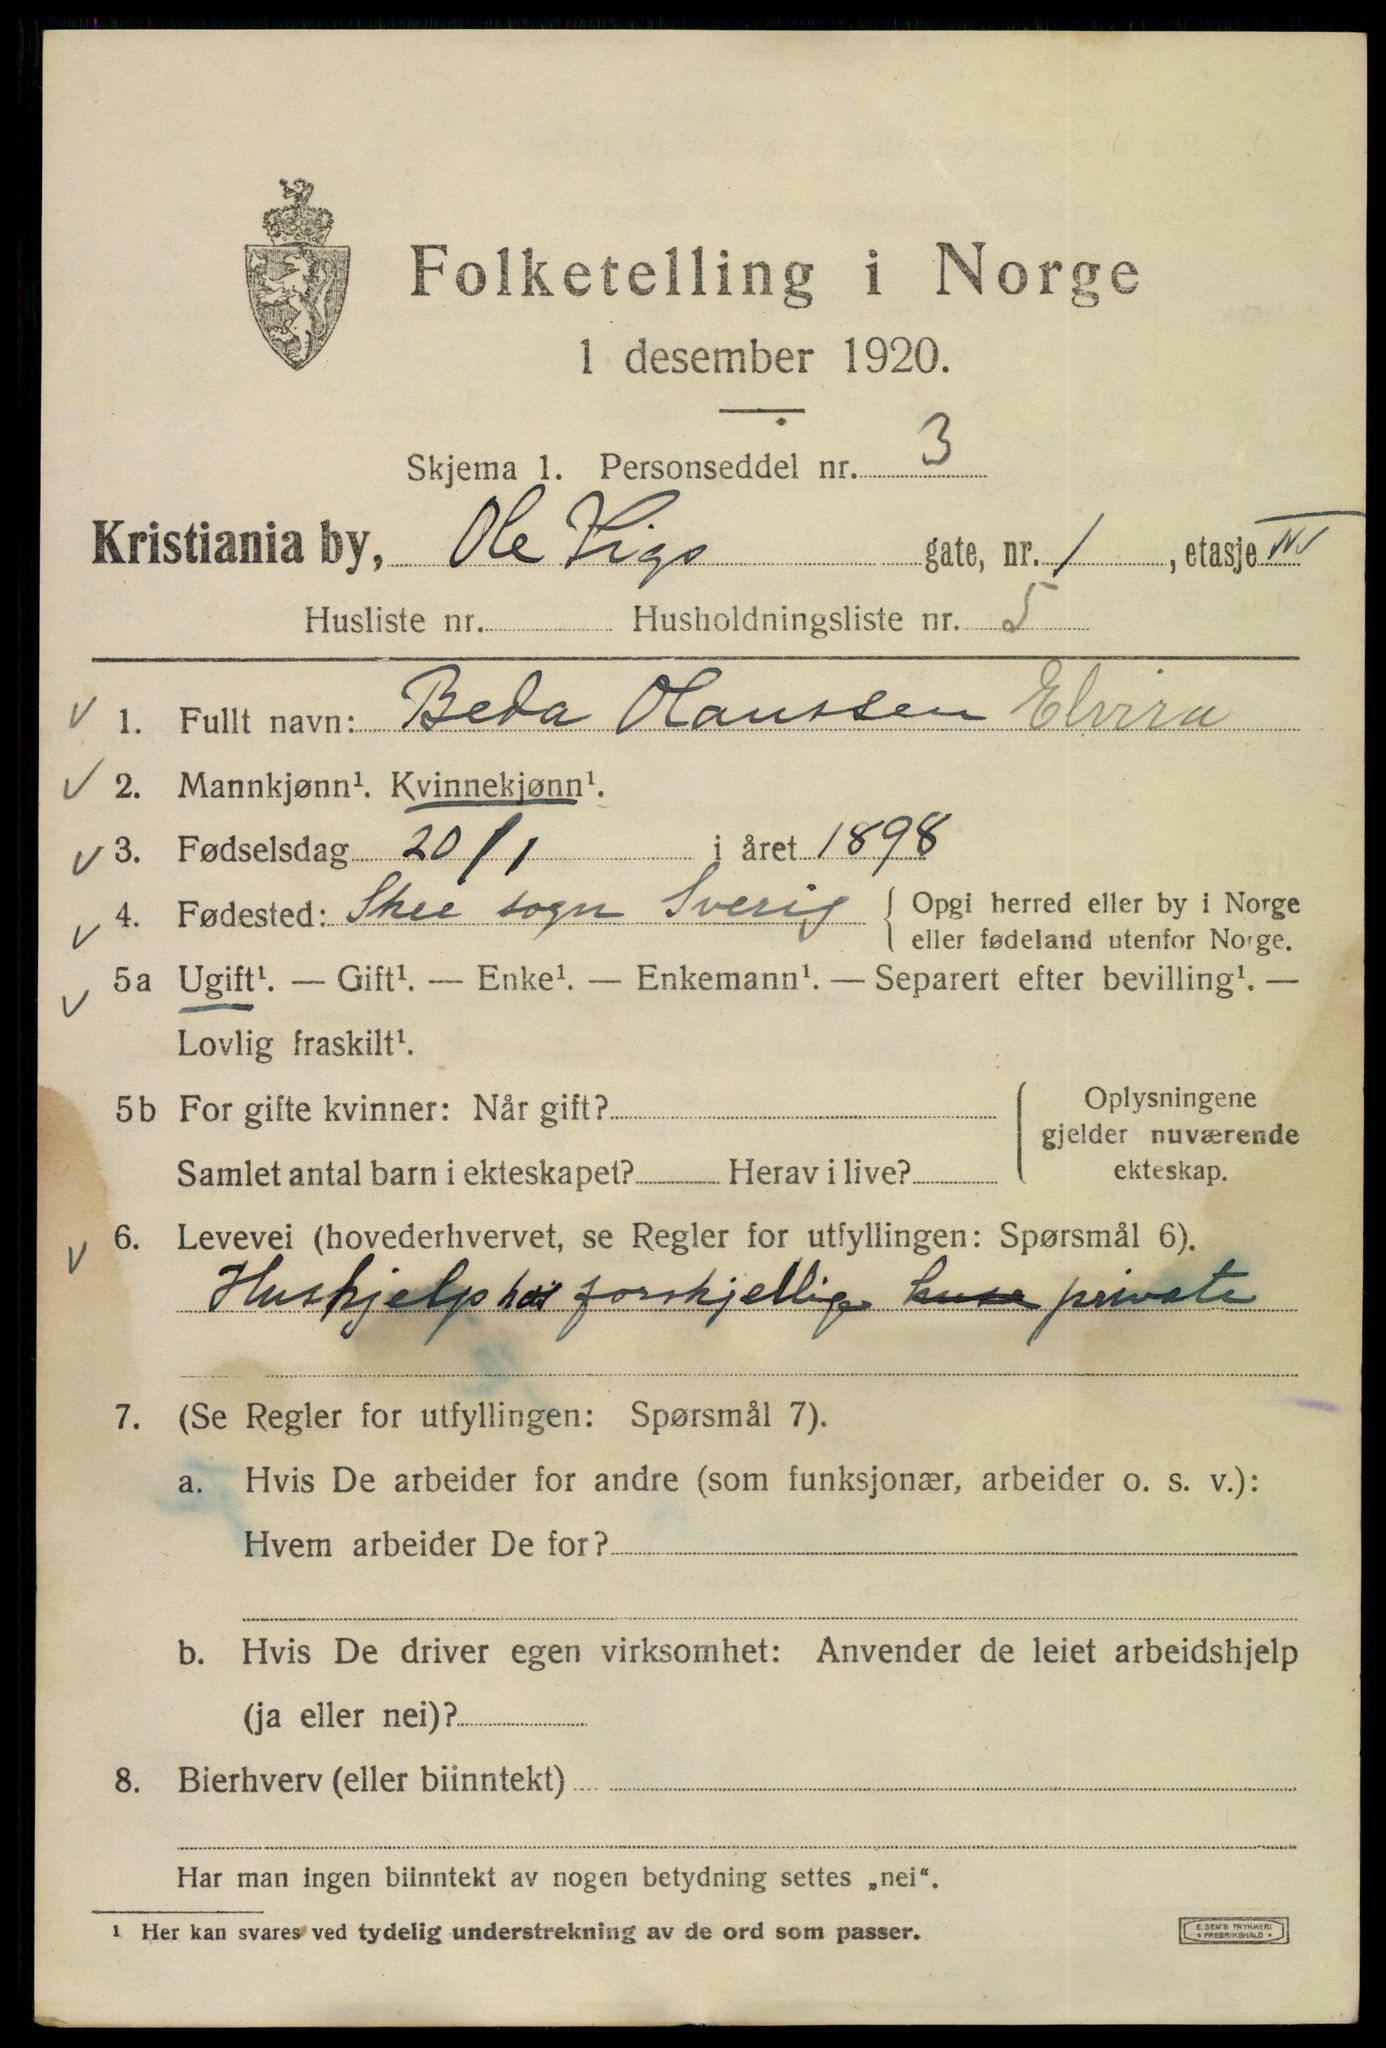 Folketelling i Norge
1 desember 1920.
Skjema 1. Personseddel nr. 3
Kristiania by, Ole Vigs gate, nr. 1, etasje IV
Husliste nr. Husholdningsliste nr. 5
1. Fullt navn: Beda Olaussen Elvira
2. Mannkjønn¹. Kvinnekjønn¹.
3. Fødselsdag 20/1 i året 1898
4. Fødested: Skee sogn Sverig { Opgi herred eller by i Norge
eller fødeland utenfor Norge.
5a Ugift¹. — Gift¹. — Enke¹. — Enkemann¹. — Separert efter bevilling¹. —
Lovlig fraskilt¹.
5b For gifte kvinner: Når gift?
Samlet antal barn i ekteskapet? Herav i live?
Oplysningene
gjelder nuværende
ekteskap.
6. Levevei (hovederhvervet, se Regler for utfyllingen: Spørsmål 6).
Hushjelp hos forskjellige huse private
7. (Se Regler for utfyllingen: Spørsmål 7).
a. Hvis De arbeider for andre (som funksjonær, arbeider o. s. v.):
Hvem arbeider De for?
b. Hvis De driver egen virksomhet: Anvender de leiet arbeidshjelp
(ja eller nei)?
8. Bierhverv (eller biinntekt)
Har man ingen biinntekt av nogen betydning settes „nei“.
¹ Her kan svares ved tydelig understrekning av de ord som passer.
E. SEM'S TRYKKERI
• FREDRIKSHALD •